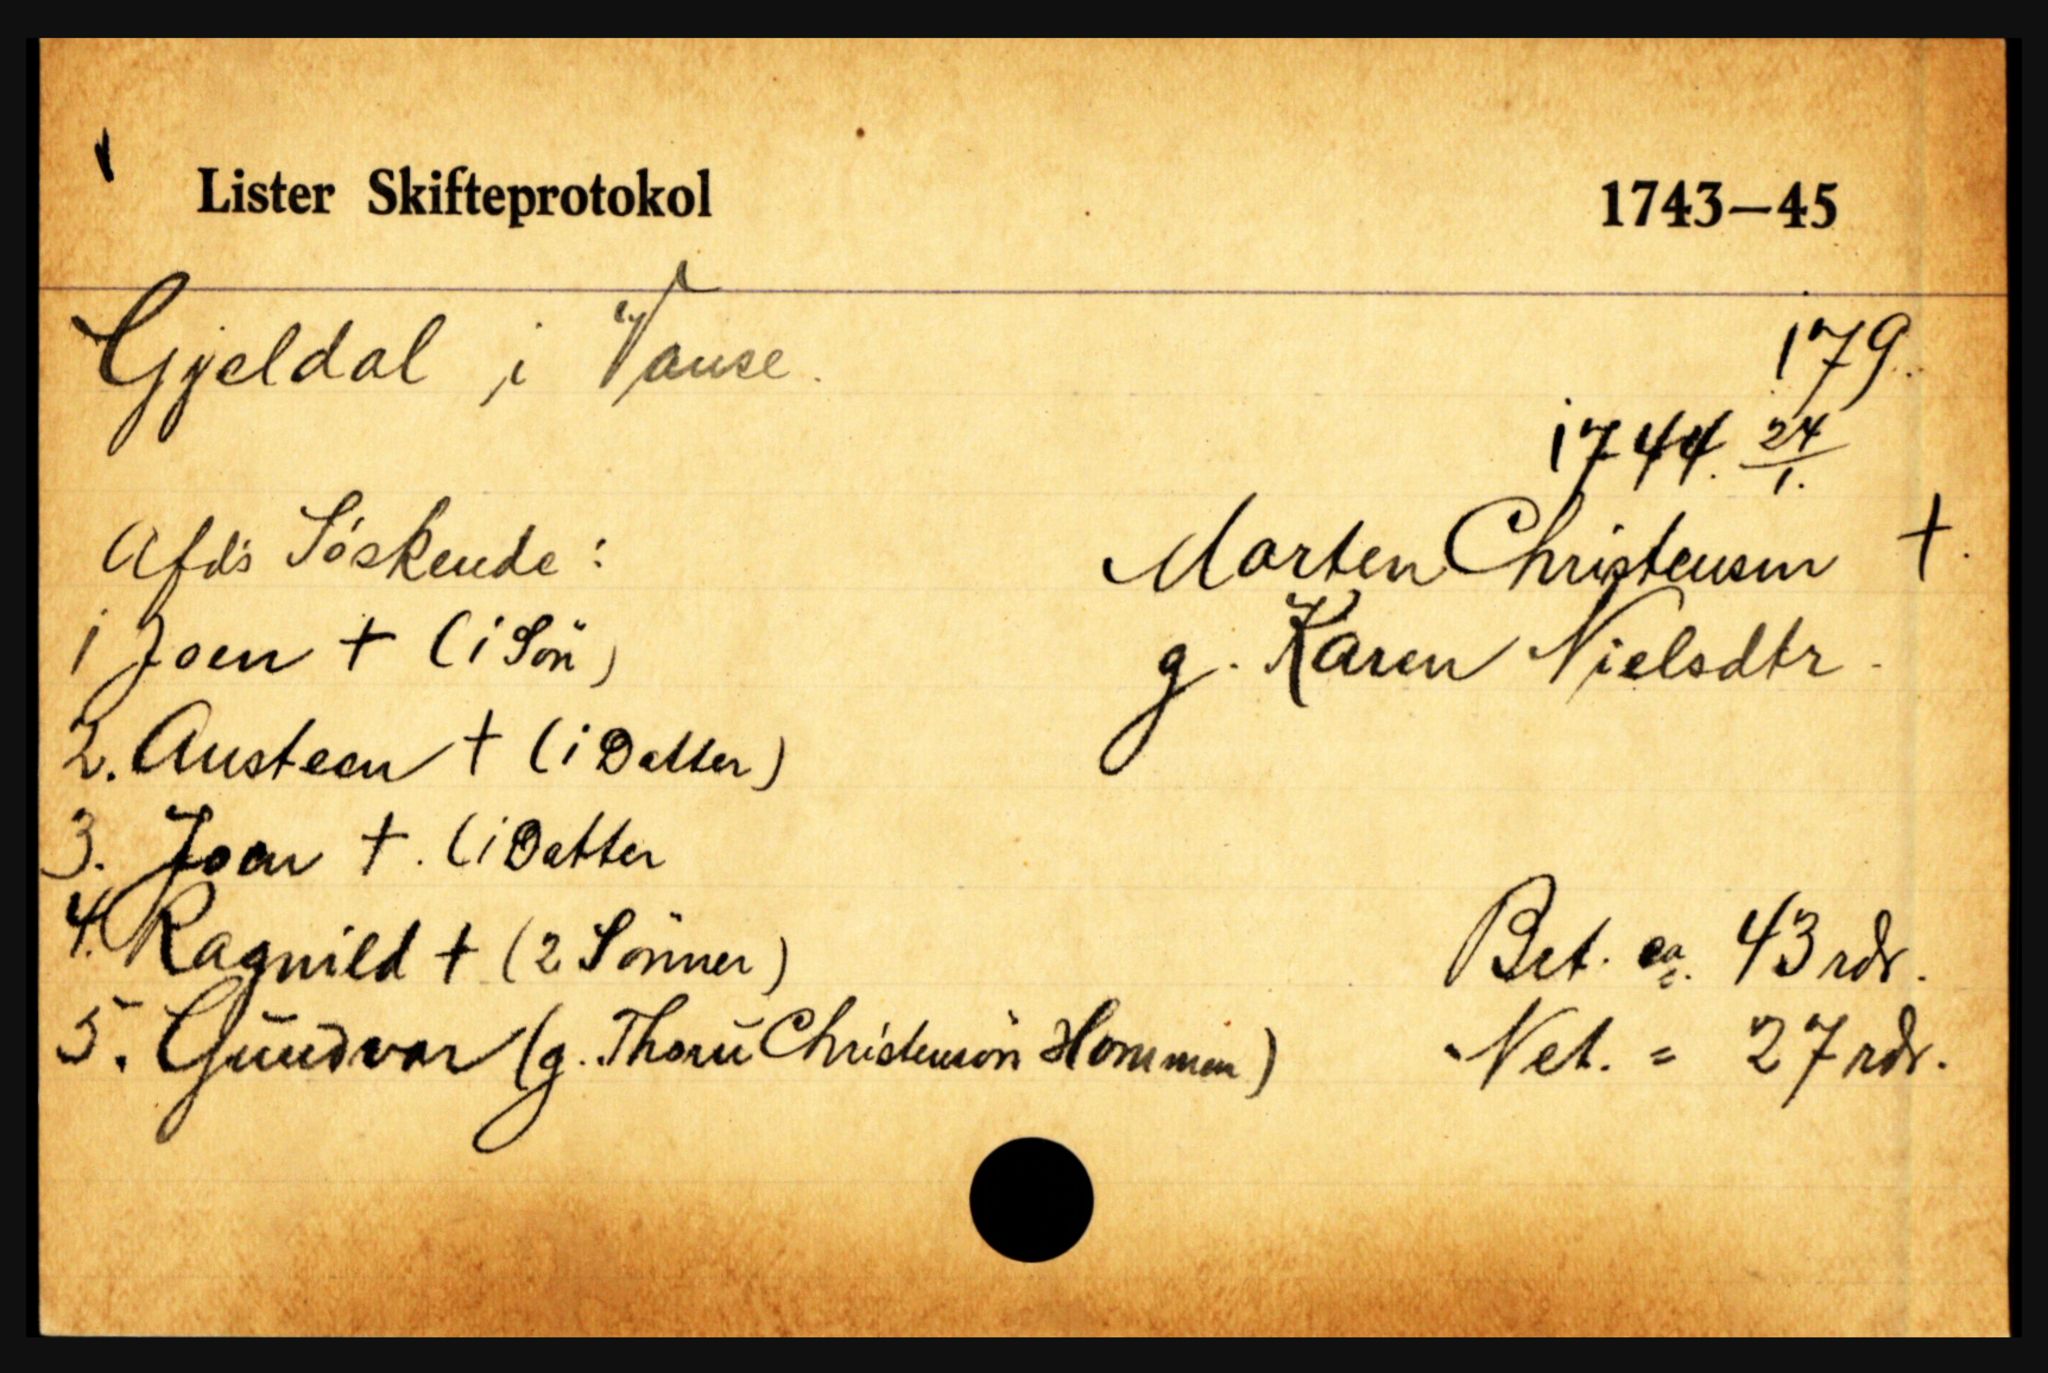 Lister Skifteprotokol 1743—45
Gyeldal i Vanse. 179.
1744. 24/1.
Afd's Söskende: Morten Christensen †.
1 Joen † (1 Sön) g. Karen Nielsdtr.
2. Austeen † (1 Datter)
3. Joen †. (1 Datter
4. Ragnild † (2 Sönner) Bet. ca. 43 rdr.
5. Gundvor (g. Thoru Christensön Hommen) Net. = 27 rdr.